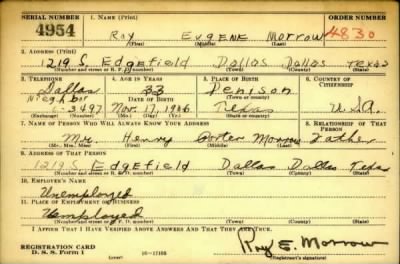 SERIAL NUMBER 1. NAME (Print) ORDER NUMBER
4954 Roy EUGENE Morrow 4830
(First) (Middle) (Last)
2. ADDRESS (Print)
1219 S. Edgefield Dallas Dallas Texas
(Number and street or R. F. D. number) (Town) (County) (State)
3. TELEPHONE 4. AGE IN YEARS 5. PLACE OF BIRTH 6. COUNTRY OF CITIZENSHIP
Dallas 33 Denison
Neighbor DATE OF BIRTH (Town or county)
6-3497 Nov. 17, 1906 Texas U.S.A.
(Exchange) (Number) (Mo.) (Day) (Yr.) (State or country)
7. NAME OF PERSON WHO WILL ALWAYS KNOW YOUR ADDRESS 8. RELATIONSHIP OF THAT PERSON
Mr. Henry Porter Morrow Father
(Mr., Mrs., Miss) (First) (Middle) (Last)
9. ADDRESS OF THAT PERSON
1219 S. Edgefield Dallas Dallas Texas
(Number and street or R. F. D. number) (Town) (County) (State)
10. EMPLOYER'S NAME
Unemployed
11. PLACE OF EMPLOYMENT OR BUSINESS
Unemployed
(Number and street or R. F. D. number) (Town) (County) (State)
I AFFIRM THAT I HAVE VERIFIED ABOVE ANSWERS AND THAT THEY ARE TRUE.
Roy E. Morrow
REGISTRATION CARD
D. S. S. Form 1 (Registrant's signature)